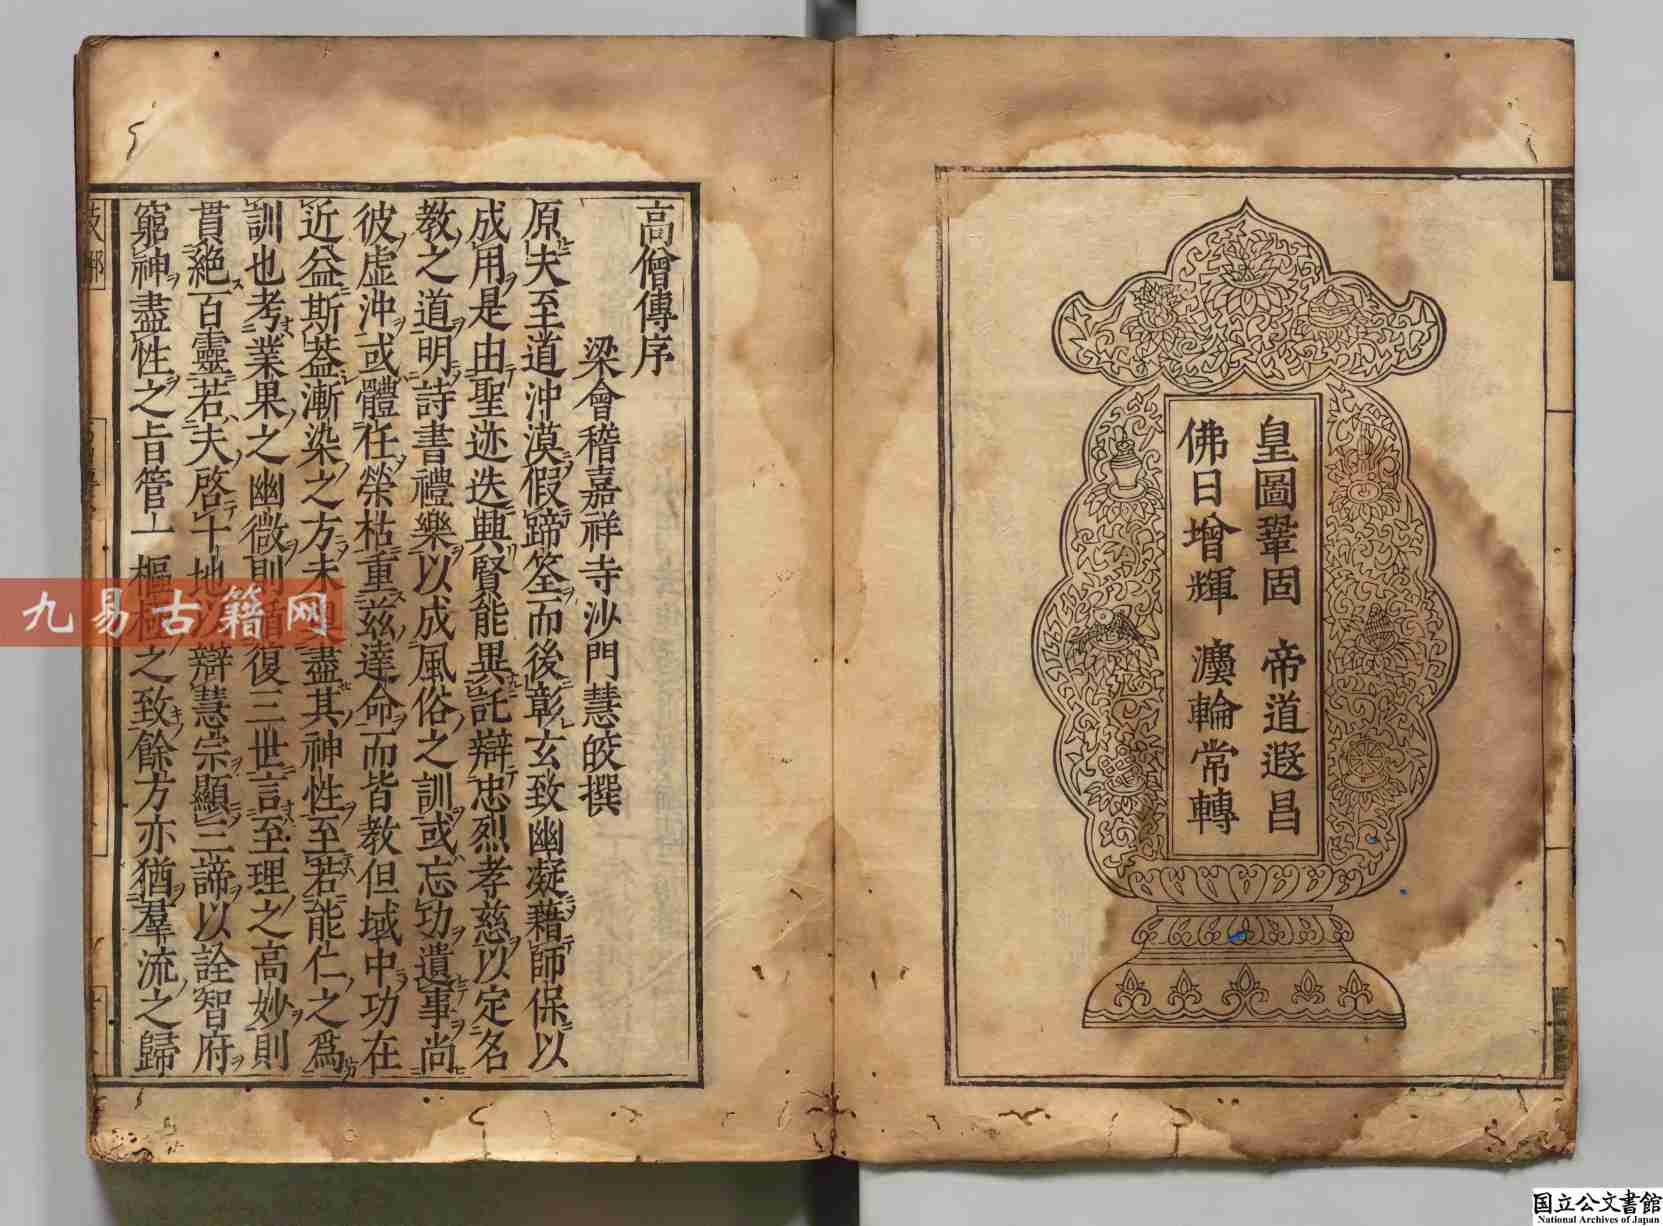 皇圖鞏固 帝道遐昌
佛日增輝 灋輪常轉
高僧傳序
梁會稽嘉祥寺沙門慧皎撰
原夫至道沖漠假蹄筌而後彰玄致幽凝藉師保以
成用是由聖迹迭興賢能異託辯忠烈孝慈以定名
教之道明詩書禮樂以成風俗之訓或忘功遺事尚
彼虛沖或體任榮枯重茲達命而皆教但域中功在
近益斯葢漸染之方未盡其神性至若能仁之爲
訓也考業果之幽微則循復三世言至理之高妙則
貫絶百靈若夫啓十地以辯慧宗顯二諦以詮智府
窮神盡性之旨管一樞極之致餘方亦猶羣流之歸
九易古籍网
国立公文書館
National Archives of Japan